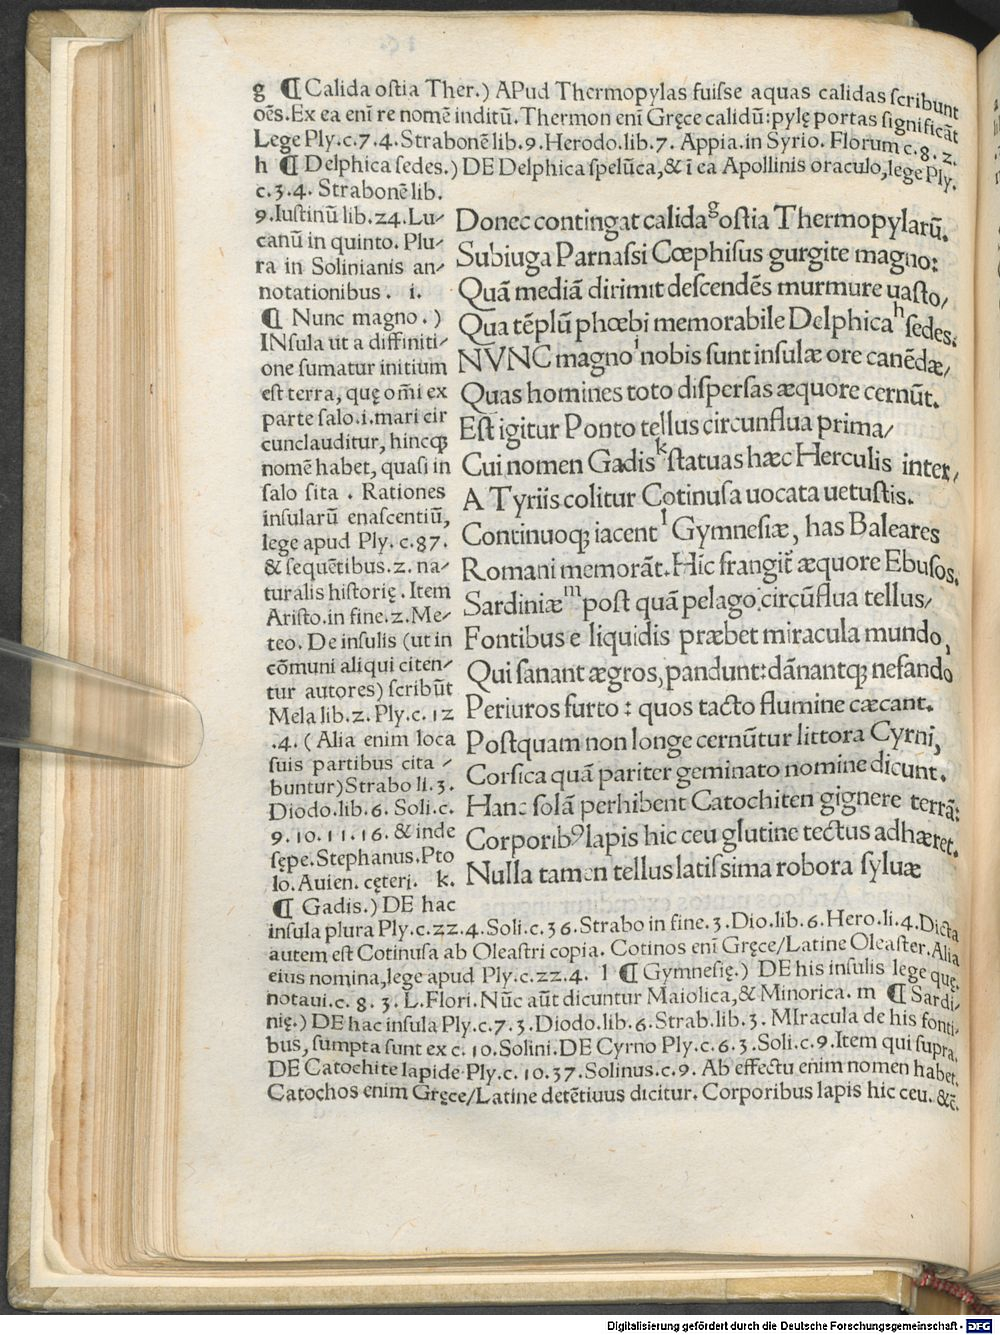 g ¶ Calida ostia Ther.) APud Thermopylas fuisse aquas calidas scribunt
oēs. Ex ea eni re nomē inditū. Thermon eni Gręce calidū: pylę portas significāt
Lege Ply. c. 7. 4. Strabonē lib. 9. Herodo. lib. 7. Appia. in Syrio. Florum c. 8. 2.
h ¶ Delphica sedes.) DE Delphica spelūca, & ī ea Apollinis oraculo, lege Ply.
c. 3. 4. Strabonē lib.
9. Iustinū lib. 24. Lu-
canū in quinto. Plu-
ra in Solinianis an-
notationibus. i.
¶ Nunc magno.)
INsula ut a diffiniti-
one sumatur initium
est terra, quę omī ex
parte salo .i. mari cir
cunclauditur, hincqꝫ
nomē habet, quasi in
salo sita. Rationes
insularū enascentiū,
lege apud Ply. c. 87.
& sequētibus. 2. na-
turalis historię. Item
Aristo. in fine. 2. Me-
teo. De insulis (ut in
cōmuni aliqui citen-
tur autores) scribūt
Mela lib. 2. Ply. c. 12
.4. (Alia enim loca
suis partibus cita-
buntur) Strabo li. 3.
Diodo. lib. 6. Soli. c.
9. 10. 11. 16. & inde
sępe. Stephanus. Pto
lo. Auien. cęteri. k.
¶ Gadis.) DE hac
Donec contingat calida g ostia Thermopylarū.
Subiuga Parnassi Cœphisus gurgite magno:
Quā mediā dirimit descendēs murmure uasto/
Qua tēplū phœbi memorabile Delphica h sedes.
NVNC magno i nobis sunt insulæ ore canēdæ/
Quas homines toto dispersas æquore cernūt.
Est igitur Ponto tellus circunflua prima/
Cui nomen Gadis k statuas hæc Herculis inter/
A Tyriis colitur Cotinusa uocata uetustis.
Continuoqꝫ iacent l Gymnesiæ, has Baleares
Romani memorāt. Hic frangit̄ æquore Ebusos.
Sardiniæ m post quā pelago circūflua tellus/
Fontibus e liquidis præbet miracula mundo,
Qui sanant ægros, pandunt: dānantqꝫ nefando
Periuros furto: quos tacto flumine cæcant.
Postquam non longe cernūtur littora Cyrni,
Corsica quā pariter geminato nomine dicunt.
Hanc solā perhibent Catochiten gignere terrā:
Corporibꝰ lapis hic ceu glutine tectus adhæret.
Nulla tamen tellus latissima robora syluæ
insula plura Ply. c. 22. 4. Soli. c. 36. Strabo in fine. 3. Dio. lib. 6. Hero. li. 4. Dicta
autem est Cotinusa ab Oleastri copia. Cotinos eni Gręce/ Latine Oleaster. Alia
eius nomina, lege apud Ply. c. 22. 4. l ¶ Gymnesię.) DE his insulis lege quę
notaui. c. 8. 3. L. Flori. Nūc aūt dicuntur Maiolica, & Minorica. m ¶ Sardi-
nię.) DE hac insula Ply. c. 7. 3. Diodo. lib. 6. Strab. lib. 3. MIracula de his fonti-
bus, sumpta sunt ex c. 10. Solini. DE Cyrno Ply. c. 6. 3. Soli. c. 9. Item qui supra.
DE Catochite lapide Ply. c. 10. 37. Solinus. c. 9. Ab effectu enim nomen habet.
Catochos enim Gręce/ Latine detētiuus dicitur. Corporibus lapis hic ceu. &c̄.
Digitalisierung gefördert durch die Deutsche Forschungsgemeinschaft - DFG